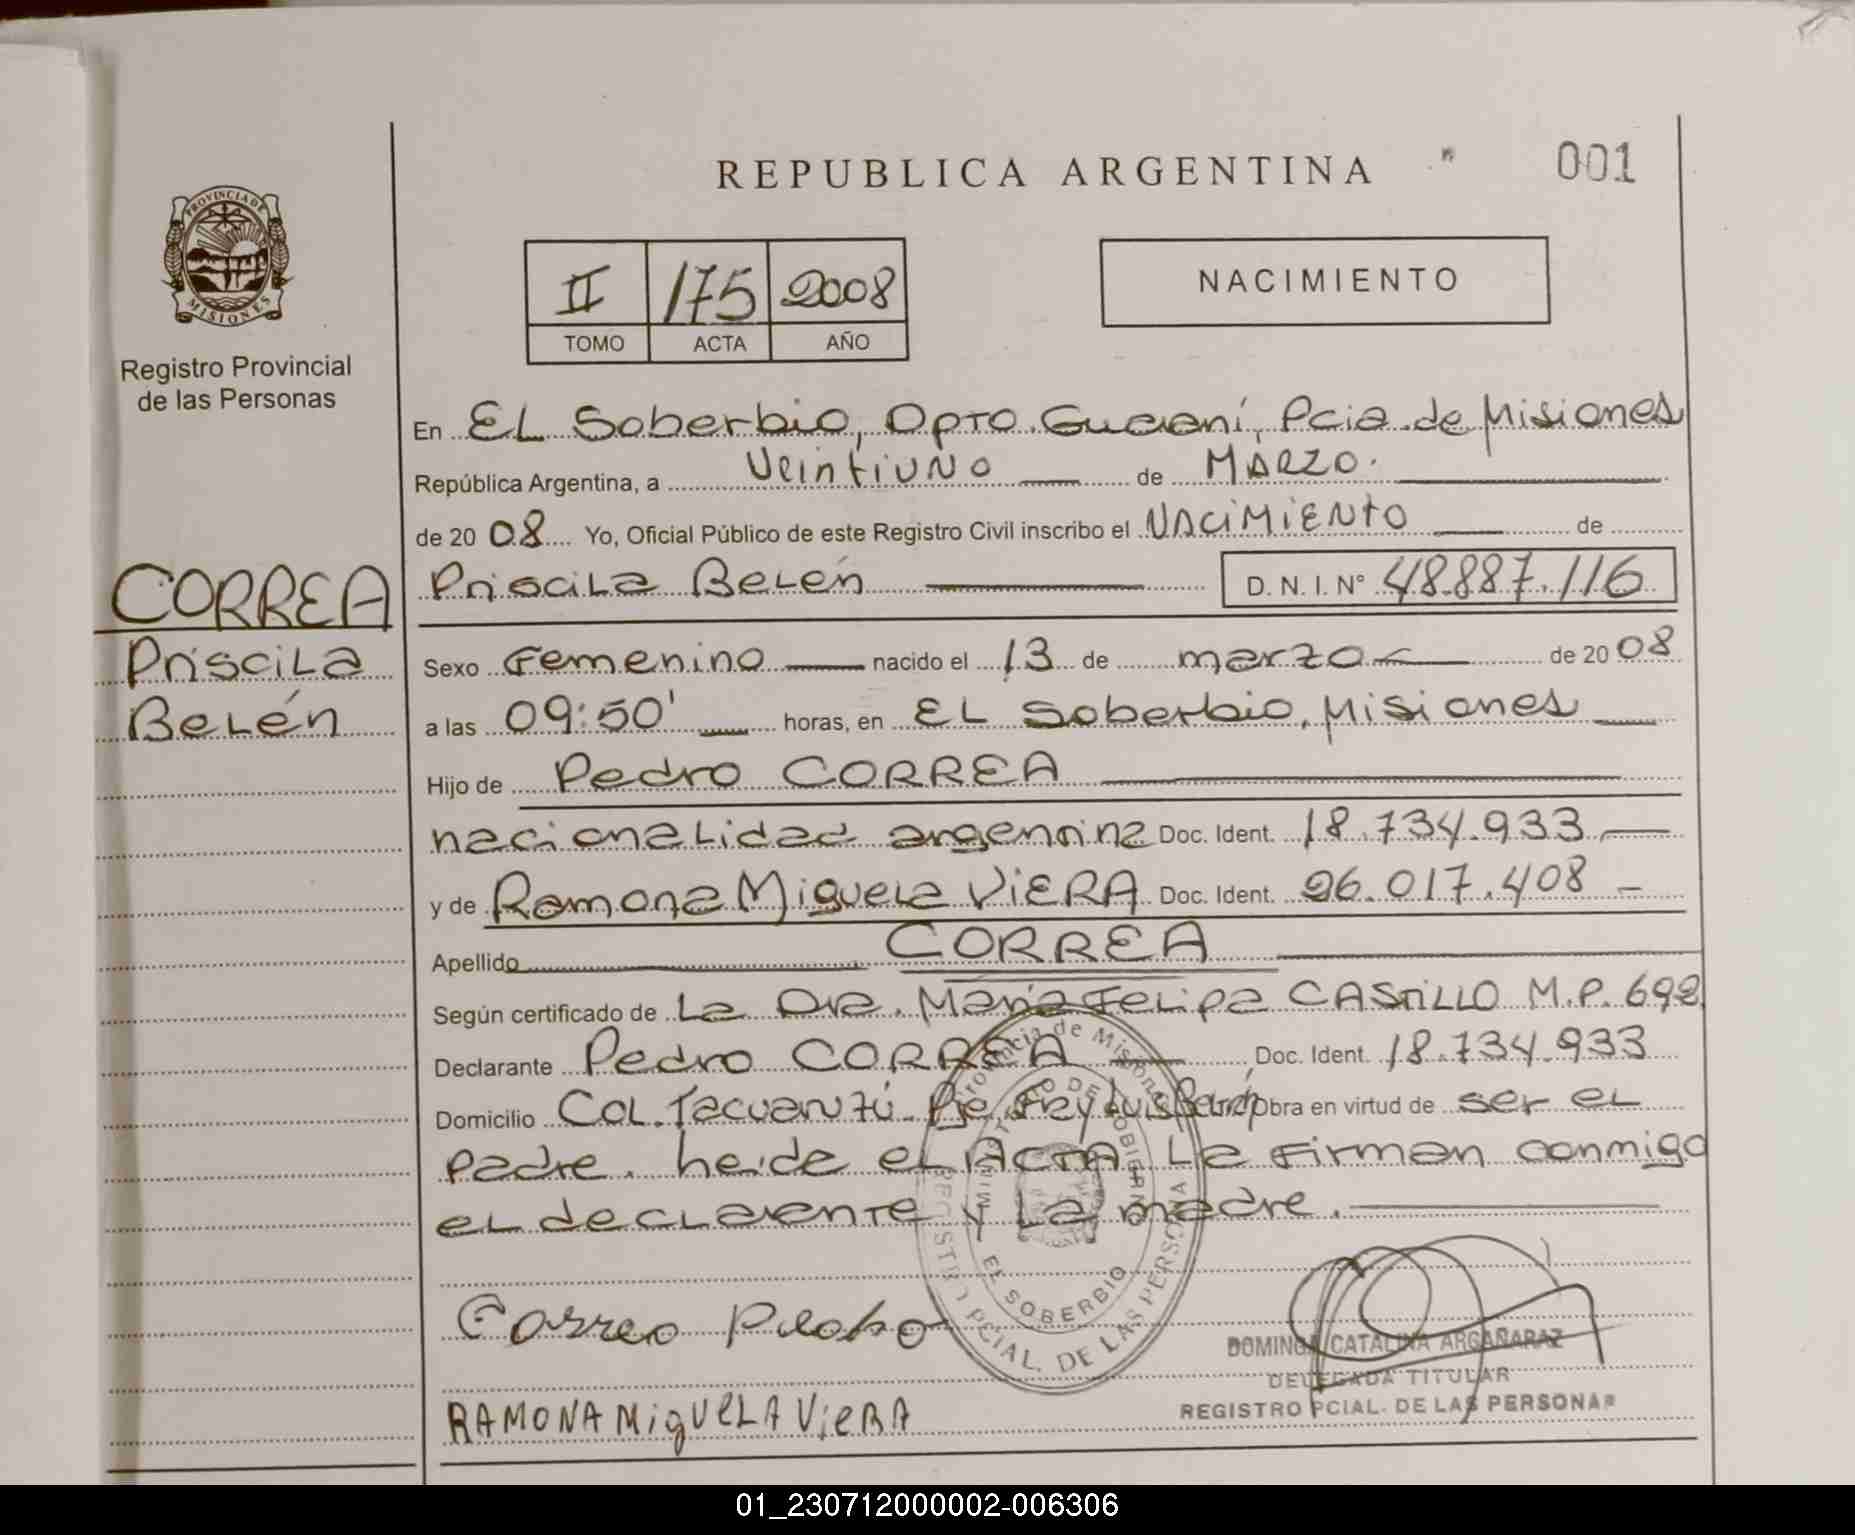 REPUBLICA ARGENTINA
001
PROVINCIA DE
MISIONES
Registro Provincial
de las Personas
II 175 2008
TOMO ACTA AÑO
NACIMIENTO
CORREA
Priscila
Belén
En EL Soberbio, Dpto. Guaraní, Pcia. de Misiones
República Argentina, a Veintiuno de MARZO.
de 20 08 Yo, Oficial Público de este Registro Civil inscribo el NACIMIENTO de
Priscila Belén D. N. I. N° 48.887.116
Sexo Femenino nacido el 13 de marzo de 20 08
a las 09:50' horas, en EL Soberbio, Misiones
Hijo de Pedro CORREA
nacionalidad argentina Doc. Ident. 18.734.933
y de Ramona Miguela VIERA Doc. Ident. 26.017.408
Apellido CORREA
Según certificado de La Dra. María Felipa CASTILLO M.P. 692
Declarante Pedro CORREA Doc. Ident. 18.734.933
Domicilio Col. Tacuaruzú Pje Fray Luis Obra en virtud de ser el
padre. heida el ACTA, La Firman conmigo
el declarante y La madre.
Provincia de Misiones
MINISTERIO DE GOBIERNO
EL SOBERBIO
REGISTRO PCIAL. DE LAS PERSONAS
Correa Pedro
DOMINGA CATALINA ARGAÑARAZ
DELEGADA TITULAR
REGISTRO PCIAL. DE LAS PERSONAS
RAMONA MigUeLA VieRA
01_230712000002-006306